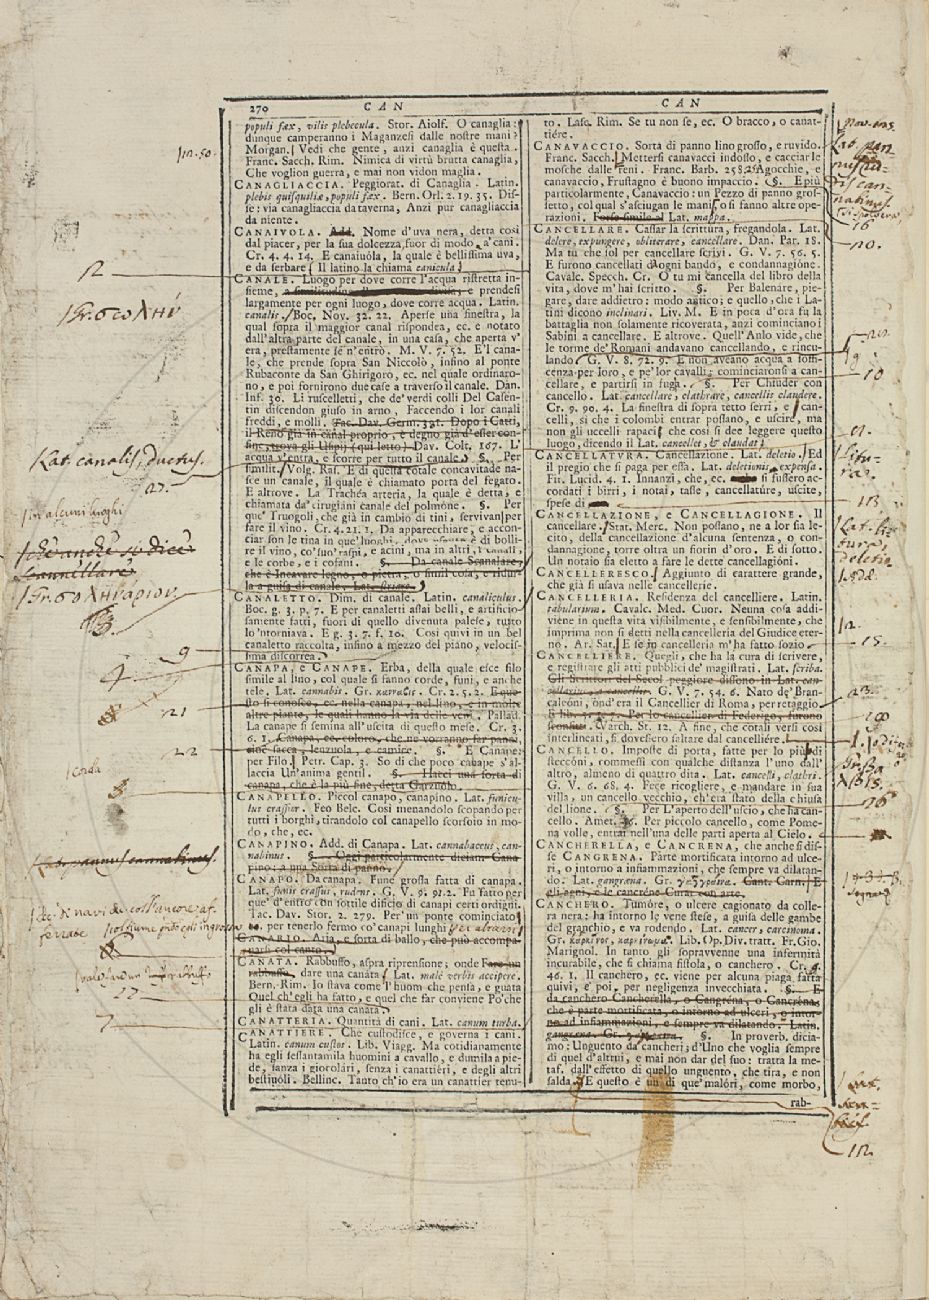 270 CAN CAN
populi fæx, vilis plebecula. Stor. Aiolf. O canaglia:
dunque camperanno i Maganzesi dalle nostre mani?
Morgan. Vedi che gente, anzi canaglia è questa.
Franc. Sacch. Rim. Nimica di virtù brutta canaglia,
Che voglion guerra, e mai non vidon maglia.
CANAGLIACCIA. Peggiorat. di Canaglia. Latin.
plebis quisquiliæ, populi fæx. Bern. Orl. 2. 19. 35. Dis-
se: via canagliaccia da taverna, Anzi pur canagliaccia
da niente.
CANAIVOLA. Add. Nome d'uva nera, detta così
dal piacer, per la sua dolcezza, fuor di modo a' cani.
Cr. 4. 4. 14. E canaiuóla, la quale è bellissima uva,
e da serbare. Il latino la chiama canicula.
CANALE. Luogo per dove corre l'acqua ristretta in-
sieme, e prendesi
largamente per ogni luogo, dove corre acqua. Latin.
canalis. Boc. Nov. 32. 22. Aperse una finestra, la
qual sopra il maggior canal rispondea, ec. e notato
dall'altra parte del canale, in una casa, che aperta v'
era, prestamente se n'entrò. M. V. 7. 52. E'l cana-
le, che prende sopra San Niccolò, infino al ponte
Rubaconte da San Ghirigoro, ec. nel quale ordinaro-
no, e poi fornirono due case a traverso il canale. Dan.
Inf. 30. Li ruscelletti, che de' verdi colli Del Casen-
tin discendon giuso in arno, Faccendo i lor canali
freddi, e molli. Tac. Dav. Germ. 371. Dopo i Catti,
il Reno già in canal proprio, e degno già d'esser con-
fine, trova gli Usipij (qui letto) Dav. Colt. 167. L'
acqua v'entra, e scorre per tutto il canale. §. Per
similit. Volg. Ras. E di questa cotale concavitade na-
sce un canale, il quale è chiamato porta del fegato.
E altrove. La Trachéa arteria, la quale è detta, e
chiamata da' cirugiani canale del polmóne. §. Per
que' Truogoli, che già in cambio di tini, servivan per
fare il vino. Cr. 4. 21. 1. Da apparecchiare, e accon-
ciar son le tina in que' luoghi, dove usanza è di bolli-
re il vino, co' suo' raspi, e acini, ma in altri, i canali,
e le corbe, e i cofani. §. Da canale Scanalare,
che è Incavare legno, o pietra, o simil cosa, e ridur-
la a guisa di canale. Lat. striare.
CANALETTO. Dim. di canale. Latin. canaliculus.
Boc. g. 3. p. 7. E per canaletti assai belli, e artificio
samente fatti, fuori di quello divenuta palese, tutto
lo 'ntorniava. E g. 3. f. 10. Così quivi in un bel
canaletto raccolta, infino al mezzo del piano, velocis-
sima discorrea.
CANAPA, e CANAPE. Erba, della quale esce filo
simile al lino, col quale si fanno corde, funi, e anche
tele. Lat. cannabis. Gr. κανναβις. Cr. 2. 5. 2. E que-
sto si conosce, ec. nella canapa, nel lino, e in molte
altre piante, le quali hanno la via delle vene. Pallad.
La canape si semina all'uscita di questo mese. Cr. 3.
6. 1. Canapa, ec. coloro, che ne vorranno far panni,
cioè sacca, lenzuola, e camice. §. E Canape;
per Filo. Petr. Cap. 3. So di che poco canape s'al-
laccia Un'anima gentil. §. Hacci una sorta di
canapa, che è la più fine, detta Garzuolo.
CANAPELLO. Piccol canapo, canapino. Lat. funicu-
lus crassior. Feo Belc. Così menandolo scopando per
tutti i borghi, tirandolo col canapello scorsoio in mo-
do, che, ec.
CANAPINO. Add. di Canapa. Lat. cannabaceus, can-
nabinus. §. Oggi particolarmente diciam Cana-
pino: a una Sorta di panno.
CANAPO. Da canapa. Fune grossa fatta di canapa.
Lat. funis crassus, rudens. G. V. 9. 91. 2. Fu fatto per
que' d'entro con sottile dificio di canapi certi ordigni.
Tac. Dav. Stor. 2. 279. Per un ponte cominciato
per tenerlo fermo co' canapi lunghi
CANARIO. Aria, e sorta di ballo, che può accompa-
gnarsi col canto.
CANATA. Rabbuffo, aspra riprensione; onde Fare un
rabbuffo, dare una canáta. Lat. malè verbis accipere.
Bern. Rim. Io stava come l'huom che pensa, e guata
Quel ch'egli ha fatto, e quel che far conviene Po' che
gli è stata data una canata.
CANATTERIA. Quantità di cani. Lat. canum turba.
CANATTIERE. Che custodisce, e governa i cani.
Latin. canum custos. Lib. Viagg. Ma cotidianamente
ha egli sessantamila huomini a cavallo, e dumila a pie-
de, sanza i giocolári, senza i canattiéri, e degli altri
bestiuóli. Bellinc. Tanto ch'io era un canattier tenu-
to. Lasc. Rim. Se tu non se, ec. O bracco, o canat-
tiére.
CANAVACCIO. Sorta di panno lino grosso, e ruvido.
Franc. Sacch. Mettersi canavacci indosso, e cacciar le
mosche dalle reni. Franc. Barb. 258. Agocchie, e
canavaccio, Frustagno è buono impaccio. §. E più
particolarmente, Canavaccio: un Pezzo di panno gros-
setto, col qual s'asciugan le mani, o si fanno altre ope-
razioni. Forse simile al Lat. mappa.
CANCELLARE. Cassar la scrittura, fregandola. Lat.
delere, expungere, obliterare, cancellare. Dan. Par. 18.
Ma tu che sol per cancellare scrivi. G. V. 7. 56. 5.
E furono cancellati d'ogni bando, e condannagióne.
Cavalc. Specch. Cr. O tu mi cancella del libro della
vita, dove m'hai scritto. §. Per Balenáre, pie-
gare, dare addietro: modo antico; e quello, che i La-
tini dicono inclinari. Liv. M. E in poca d'ora fu la
battaglia non solamente ricoverata, anzi cominciano i
Sabini a cancellare. E altrove. Quell'Aulo vide, che
le torme de' Romani andavano cancellando, e rincu-
lando. G. V. 8. 72. 9. E non aveano acqua a soffi-
cenza per loro, e pe' lor cavalli: cominciaronsi a can-
cellare, e partirsi in fuga. §. Per Chiuder con
cancello. Lat. cancellare, clathrare, cancellis claudere.
Cr. 9. 90. 4. La finestra di sopra tetto serri, e can-
celli, si che i colombi entrar possano, e uscire, ma
non gli uccelli rapaci; che così si dee leggere questo
luogo, dicendo il Lat. cancellet, & claudat.
CANCELLATVRA. Cancellazione. Lat. deletio. Ed
il pregio che si paga per essa. Lat. deletionis expensa.
Fir. Lucid. 4. 1. Innanzi, che, ec. si fussero ac-
cordati i birri, i notai, tasse, cancellature, uscite,
spese di
CANCELLAZIONE, e CANCELLAGIONE. Il
cancellare. Stat. Merc. Non possano, ne a lor sia le-
cito, della cancellazione d'alcuna sentenza, o con-
dannagione, torre oltra un fiorin d'oro. E di sotto.
Un notaio sia eletto a fare le dette cancellagióni.
CANCELLERESCO. Aggiunto di carattere grande,
che già si usava nelle cancellerie.
CANCELLERIA. Residenza del cancelliere. Latin.
tabularium. Cavalc. Med. Cuor. Neuna cosa addi-
viène in questa vita visibilmente, e sensibilmente, che
imprima non si detti nella cancelleria del Giudice eter-
no. Ar. Sat. E se in cancelleria m'ha fatto sozio
CANCELLIERE. Quegli, che ha la cura di scrivere,
e registrare gli atti pubblici de' magistrati. Lat. scriba.
Gli Scrittori del Secol peggiore dissono in Lat. can-
cellarius, a cancellis. G. V. 7. 54. 6. Nato de' Bran-
caleóni, ond'era il Cancellier di Roma, per retaggio
Varch. St. 12. A fine, che cotali versi così
interlineati, si dovessero saltare dal cancelliére.
CANCELLO. Imposte di porta, fatte per lo più di
stecconi, commessi con qualche distanza l'uno dall'
altro, almeno di quattro dita. Lat. cancelli, clathri.
G. V. 6. 68. 4. Fece ricogliere, e mandare in sua
villa, un cancello vecchio, ch'era stato della chiusa
del lione. §. Per L'aperto dell'uscio, che ha can-
cello. Amet. 36. Per piccolo cancello, come Pome-
na volle, entrai nell'una delle parti aperta al Cielo.
CANCHERELLA, e CANCRENA, che anche si dis-
se CANGRENA. Parte mortificata intorno ad ulce-
ri, o intorno a infiammazioni, che sempre va dilatan-
do. Lat. gangræna. Gr. γάγγραινα. Cant. Carn. E
gli apri, e le cancrene Curo con arte.
CANCHERO. Tumóre, o ulcere cagionato da colle-
ra nera: ha intorno le vene stese, a guisa delle gambe
del granchio, e va rodendo. Lat. cancer, carcinoma.
Gr. καρκίνος, καρκίνωμα. Lib. Op. Div. tratt. Fr. Gio.
Marignol. In tanto gli sopravvenne una infermità
incurabile, che si chiama fistola, o canchero. Cr. 4.
46. 1. Il canchero, ec. viene per alcuna piaga fatta
quivi, e poi per negligenza invecchiata. §. E
da canchero Cancherella, o Cangréna, o Cancréna:
che è parte mortificata, o intorno ad ulceri, o intor-
no ad infiammazioni, e sempre va dilatando. Latin.
§. In proverb. dicia-
mo: Unguento da cancheri; d'Uno che voglia sempre
di quel d'altrui, e mai non dar del suo: tratta la me-
taf. dall'effetto di quello unguento, che tira, e non
salda. E questo è un di que' malóri, come morbo,
rab-
12
Gr. σωλήν
Lat. canalis, ductus.
27.
in alcuni luoghi
che anche si dice
scannellare
Gr. σωληνάριον
9
4
21
22
corda
Lat. pannus cannabinus.
7
20.
9.
10
13
12.
15.
23.
18
26
12.